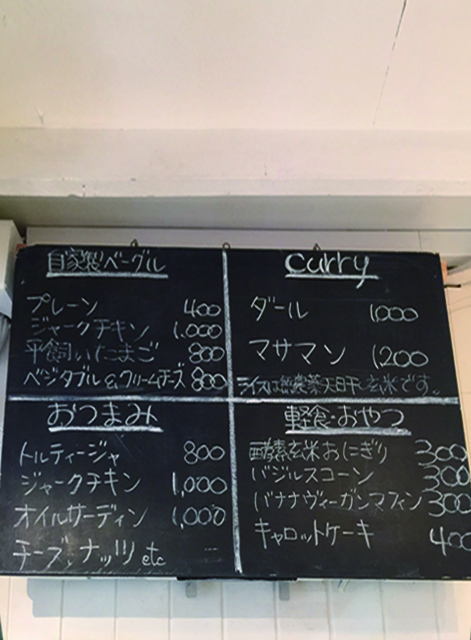 自家製ベーグル
プレーン 400
ジャークチキン 1,000
平飼いたまご 800
ベジタブル&クリームチーズ 800
curry
ダール 1,000
マサマン 1,200
ライスは無農薬天日干し玄米です。
おつまみ
トルティージャ 800
ジャークチキン 1,000
オイルサーディン 1,000
チーズ、ナッツ etc
軽食・おやつ
酵素玄米おにぎり 300
バジルスコーン 300
バナナヴィーガンマフィン 300
キャロットケーキ 400